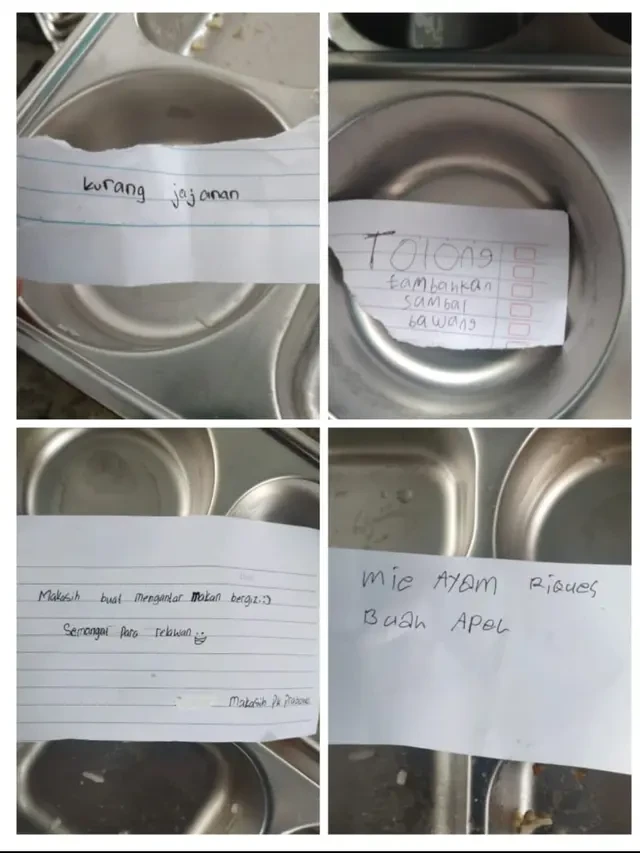 kurang jajanan
Tolong
tambahkan
sambal
bawang
Makasih buat mengantar makan bergizi :)
Semangat Para relawan
Makasih Pk Prabowo
Mie AYAM Riques
Buah APEL